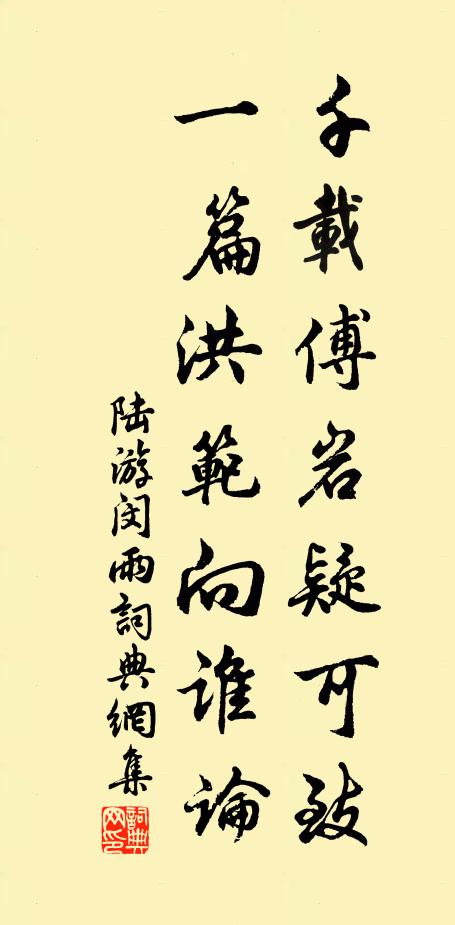 千載傅岩疑可致
一篇洪範向誰論
陆游闵雨詞典網集
詞典网印